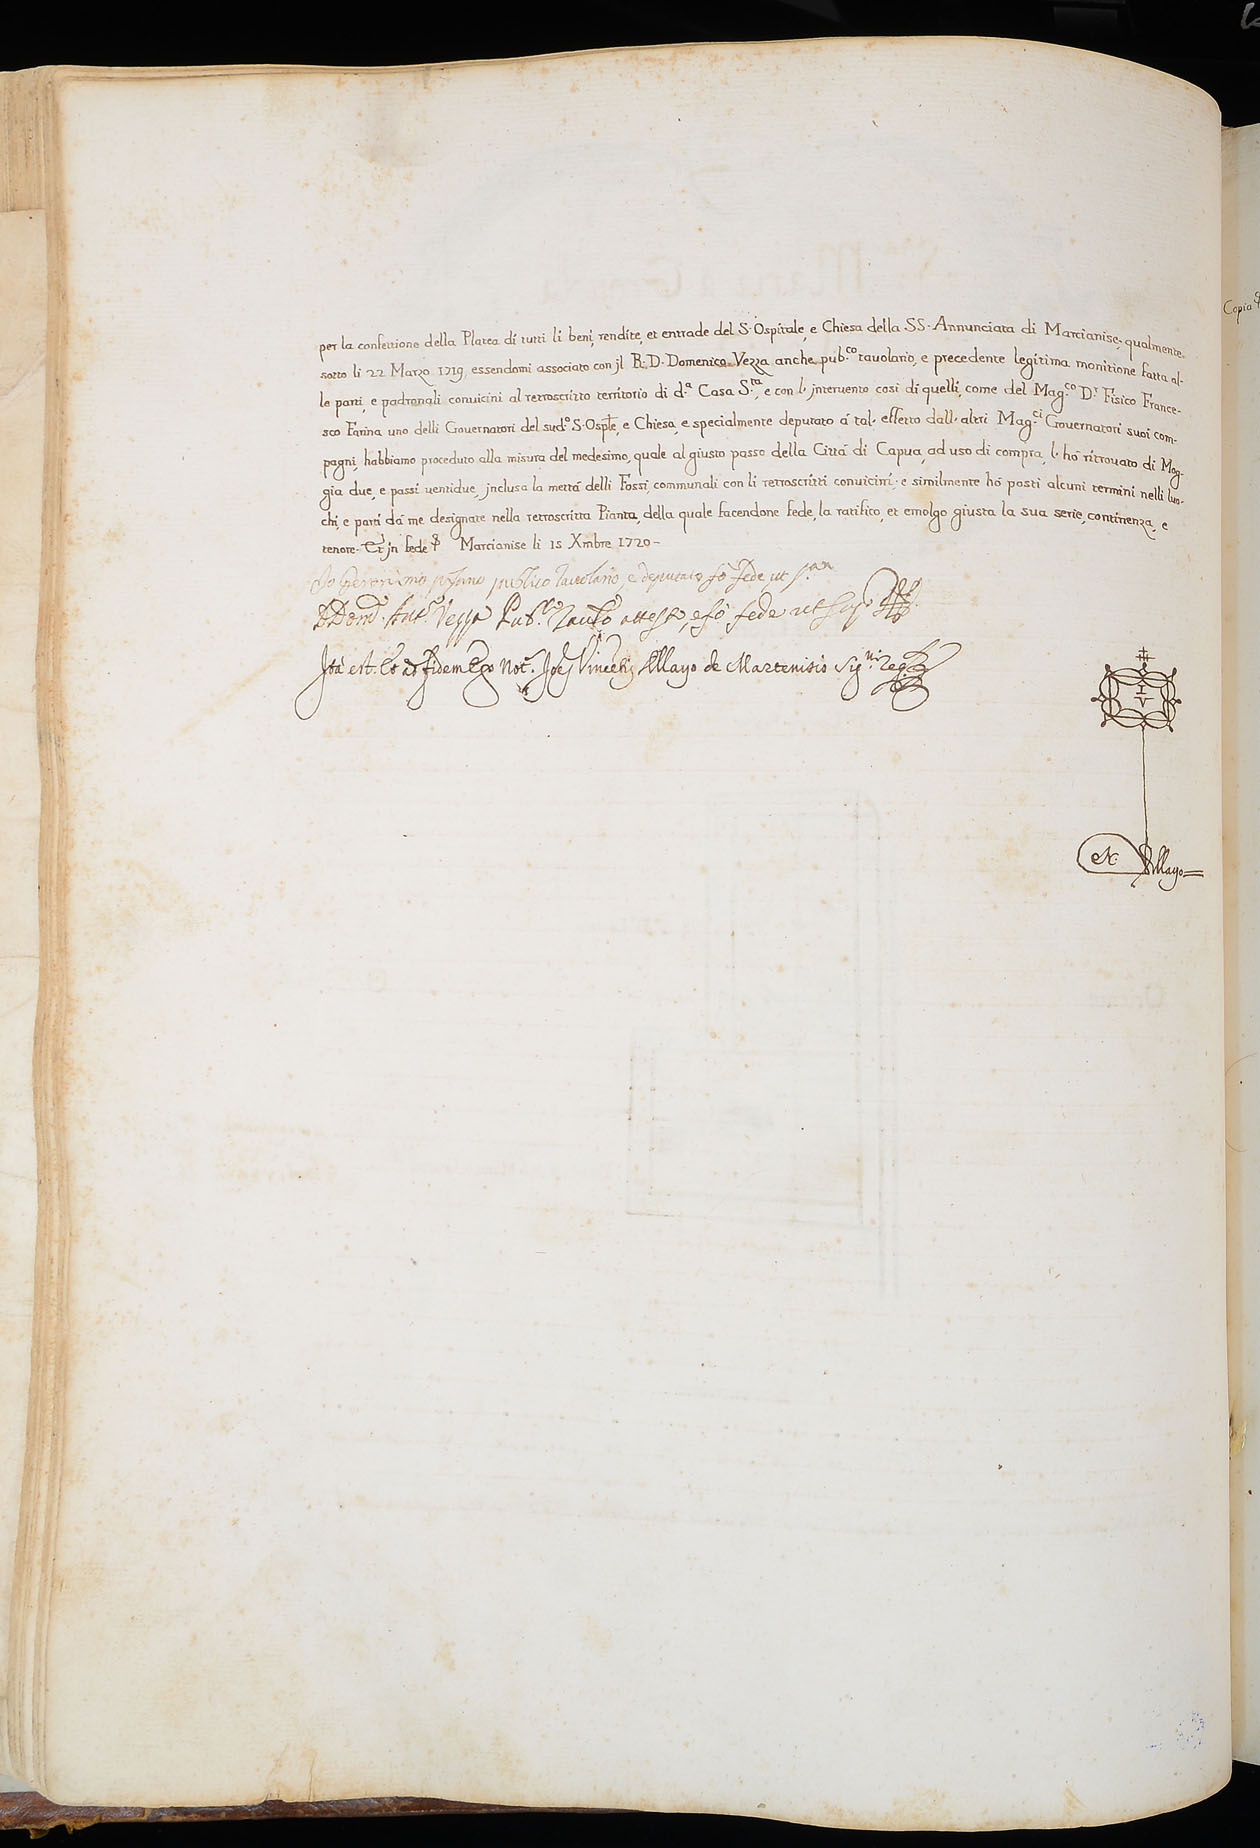 per la confettione della Platea di tutti li beni, rendite, et entrade del S. Ospitale, e Chiesa della SS. Annunciata di Marcianise, qualmente
sotto li 22 Marzo 1719, essendomi associato con jl R. D. Domenico Vezza anche pub.co tavolario, e precedente legitima monitione fatta al-
le parti, e padronali convicini al retroscritto territorio di d.a Casa S.ta, e con l'intervento cosi di quelli, come del Mag.co D.r Fisico France-
sco Farina uno delli Governatori del sud.o S. Osple, e Chiesa, e specialmente deputato á tal' effetto dall' altri Mag.ci Governatori suoi com-
pagni, habbiamo proceduto alla misura del medesimo, quale al giusto passo della Cittá di Capua, ad uso di compra, l' hó ritrovato di Mog-
gia due, e passi ventidue, jnclusa la mettá delli Fossi communali con li retroscritti convicini: e similmente hó posti alcuni termini nelli luo-
chi, e parti dá me designate nella retroscritta Pianta, della quale facendone fede, la ratifico, et emolgo giusta la sua serie, continenza, e
tenore. Et jn fede Marcianise li 15 Xmbre 1720 -
publico tavolario, e deputato fó fede ut
D. Dom.co Ant.o Vezza Pub.co Tau.o attesto, e fó fede ut sup.a
Ita est. Et ad fidem Ego Not.r Joes Vincentius de Mayo de Martenisio Sig.ni Reg.
I
V
N. de Mayo
Copia